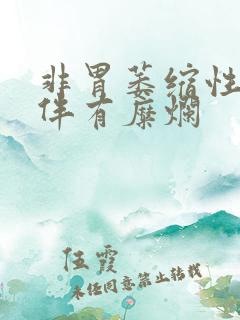 非胃萎缩性
伴有糜烂
伍霞
未经同意禁止转载